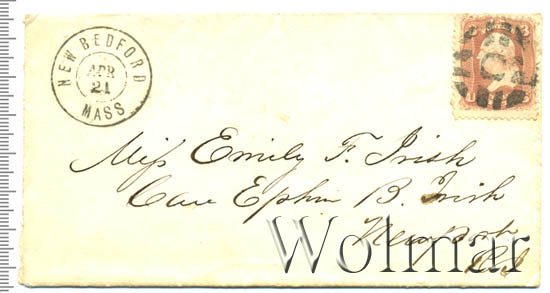 NEW BEDFORD
APR
21
MASS.
Miss Emily F. Irish
Care Ephm B. Irish
Newport
R.I
Wolmar